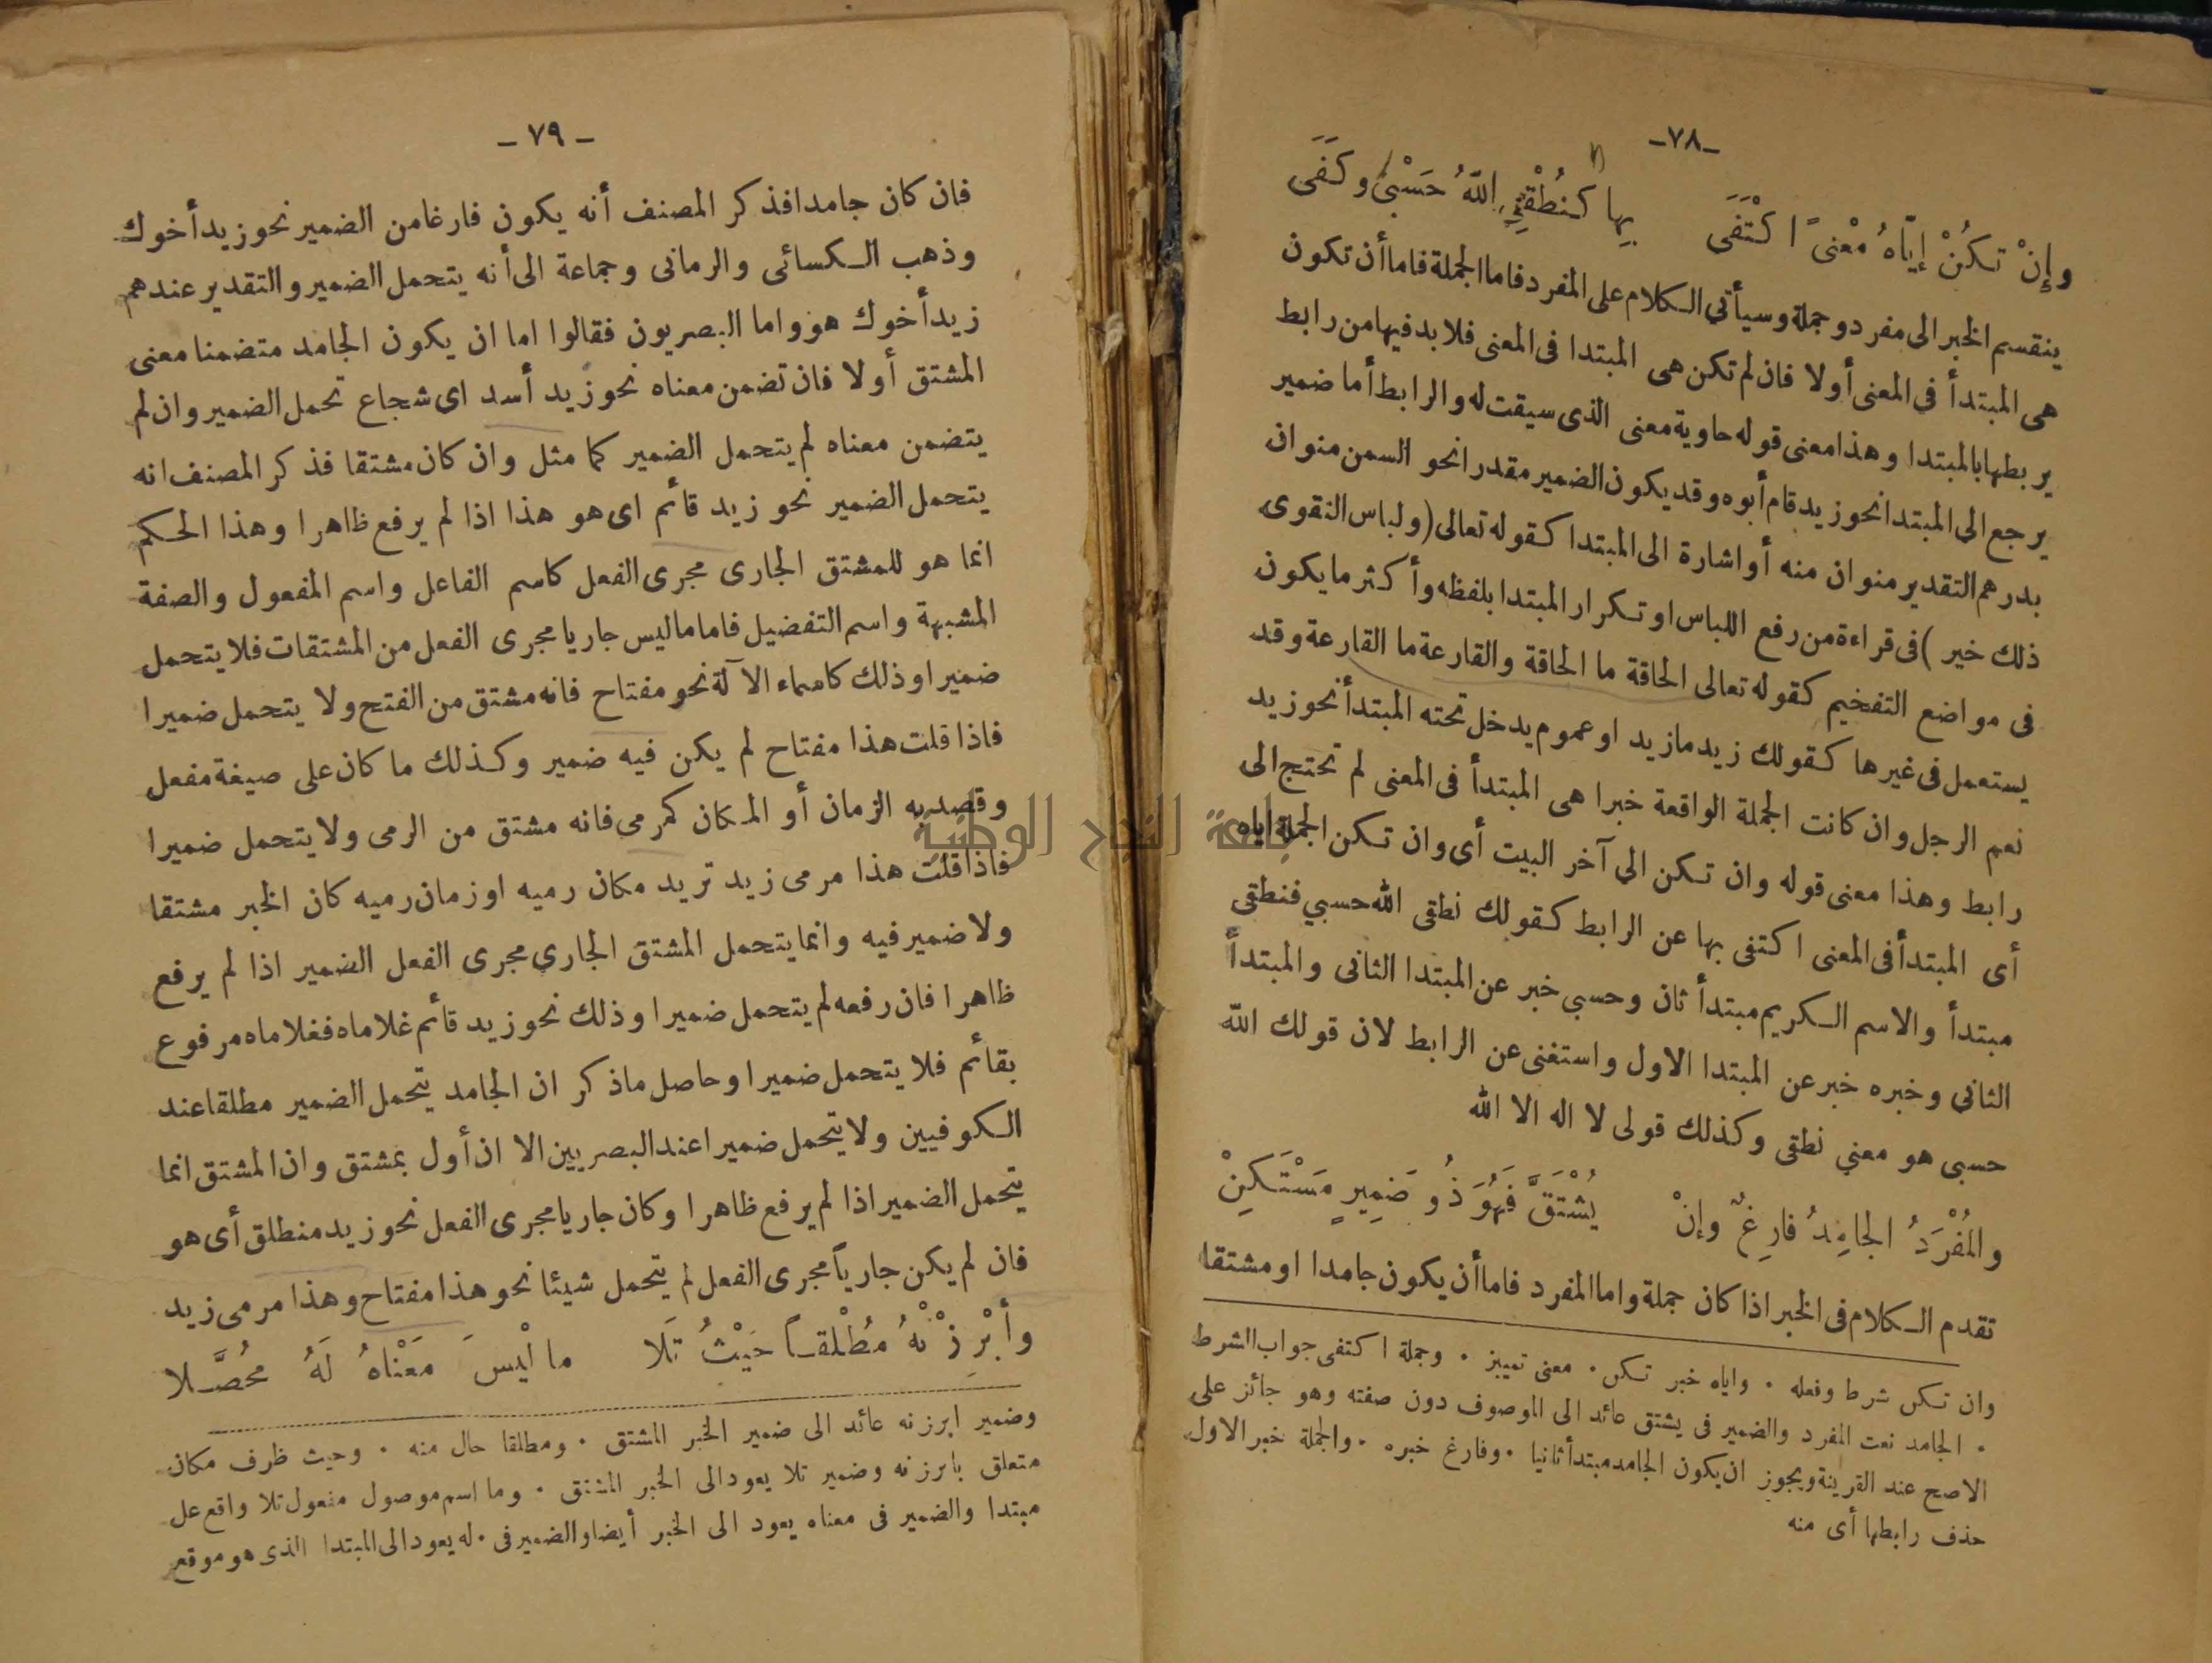 -٧٨-
وإِنْ تكُنْ إيّاهُ مَعْنىً ا كْتَفَى بِها كنُطْقِي اللّهُ حَسْبِي وكَفَى
ينقسم الخبر الى مفرد وجملة وسيأتي الكلام على المفرد فاما الجملة فاما أن تكون
هى المبتدأ في المعنى أولا فان لم تكن هى المبتدا فى المعنى فلا بد فيها من رابط
يربطها بالمبتدا وهذا معنى قوله حاوية معنى الذى سيقت له والرابط أما ضمير
يرجع الى المبتدا نحو زيد قام أبوه وقد يكون الضمير مقدرا نحو السمن منوان
بدرهم التقدير منوان منه أو اشارة الى المبتدا كقوله تعالى (ولباس التقوى
ذلك خير) فى قراءة من رفع اللباس او تكرار المبتدا بلفظه وأكثر ما يكون
فى مواضع التفخيم كقوله تعالى الحاقة ما الحاقة والقارعة ما القارعة وقد
يستعمل فى غيرها كقولك زيد ما زيد او عموم يدخل تحته المبتدأ نحو زيد
نعم الرجل وان كانت الجملة الواقعة خبرا هى المبتدأ فى المعنى لم تحتج الى
رابط وهذا معنى قوله وان تكن الي آخر البيت أى وان تكن الجملة اياه
أى المبتدأ فى المعنى اكتفى بها عن الرابط كقولك نطقى الله حسبي فنطقى
مبتدأ والاسم الكريم مبتدأ ثان وحسبي خبر عن المبتدا الثانى والمبتدأ
الثاني وخبره خبر عن المبتدا الاول واستغنى عن الرابط لان قولك الله
حسبى هو معني نطقى وكذلك قولى لا اله الا الله
والمُفْرَدُ الجامِدُ فارِغٌ وإنْ يُشْتَقَّ فَهُوَ ذُو ضَمِيرٍ مَسْتَكِنْ
تقدم الكلام فى الخبر اذا كان جملة واما المفرد فاما أن يكون جامدا او مشتقا
وان تكن شرط وفعله ٠ واياه خبر تكن ٠ معنى تمييز ٠ وجملة اكتفى جواب الشرط
٠ الجامد نعت المفرد والضمير فى يشتق عائد الى الموصوف دون صفته وهو جائز على
الاصح عند القرينة ويجوز ان يكون الجامد مبتدأ ثانيا ٠ وفارغ خبره ٠ والجملة خبر الاول
حذف رابطها أى منه
-٧٩-
فان كان جامدا فذكر المصنف أنه يكون فارغا من الضمير نحو زيد أخوك
وذهب الكسائى والرمانى وجماعة الى أنه يتحمل الضمير والتقدير عندهم
زيد أخوك هو واما البصريون فقالوا اما ان يكون الجامد متضمنا معنى
المشتق أولا فان تضمن معناه نحو زيد أسد اى شجاع تحمل الضمير وان لم
يتضمن معناه لم يتحمل الضمير كما مثل وان كان مشتقا فذكر المصنف انه
يتحمل الضمير نحو زيد قائم اى هو هذا اذا لم يرفع ظاهرا وهذا الحكم
انما هو للمشتق الجارى مجرى الفعل كاسم الفاعل واسم المفعول والصفة
المشبهة واسم التفضيل فاما ما ليس جاريا مجرى الفعل من المشتقات فلا يتحمل
ضميرا وذلك كاسماء الآلة نحو مفتاح فانه مشتق من الفتح ولا يتحمل ضميرا
فاذا قلت هذا مفتاح لم يكن فيه ضمير وكذلك ما كان على صيغة مفعل
وقصد به الزمان أو المكان كمرمى فانه مشتق من الرمى ولا يتحمل ضميرا
فاذا قلت هذا مرمى زيد تريد مكان رميه او زمان رميه كان الخبر مشتقا
ولا ضمير فيه وانما يتحمل المشتق الجاري مجرى الفعل الضمير اذا لم يرفع
ظاهرا فان رفعه لم يتحمل ضميرا وذلك نحو زيد قائم غلاماه فغلاماه مرفوع
بقائم فلا يتحمل ضميرا وحاصل ما ذكر ان الجامد يتحمل الضمير مطلقا عند
الكوفيين ولا يتحمل ضميرا عند البصريين الا ان أول بمشتق وان المشتق انما
يتحمل الضمير اذا لم يرفع ظاهرا وكان جاريا مجرى الفعل نحو زيد منطلق أى هو
فان لم يكن جارياً مجرى الفعل لم يتحمل شيئا نحو هذا مفتاح وهذا مرمى زيد
وأبْرِزَنْهُ مُطْلقـاً حَيْثُ تَلا ما لَيْسَ مَعْناهُ لَهُ مُحُصَّلا
وضمير ابرزنه عائد الى ضمير الخبر المشتق ٠ ومطلقا حال منه ٠ وحيث ظرف مكان
متعلق بابرزنه وضمير تلا يعود الى الخبر المشتق ٠ وما اسم موصول مفعول تلا واقع على
مبتدا والضمير فى معناه يعود الى الخبر أيضا والضمير فى ٠ له يعود الى المبتدا الذى هو موقع
جامعة النجاح الوطنية